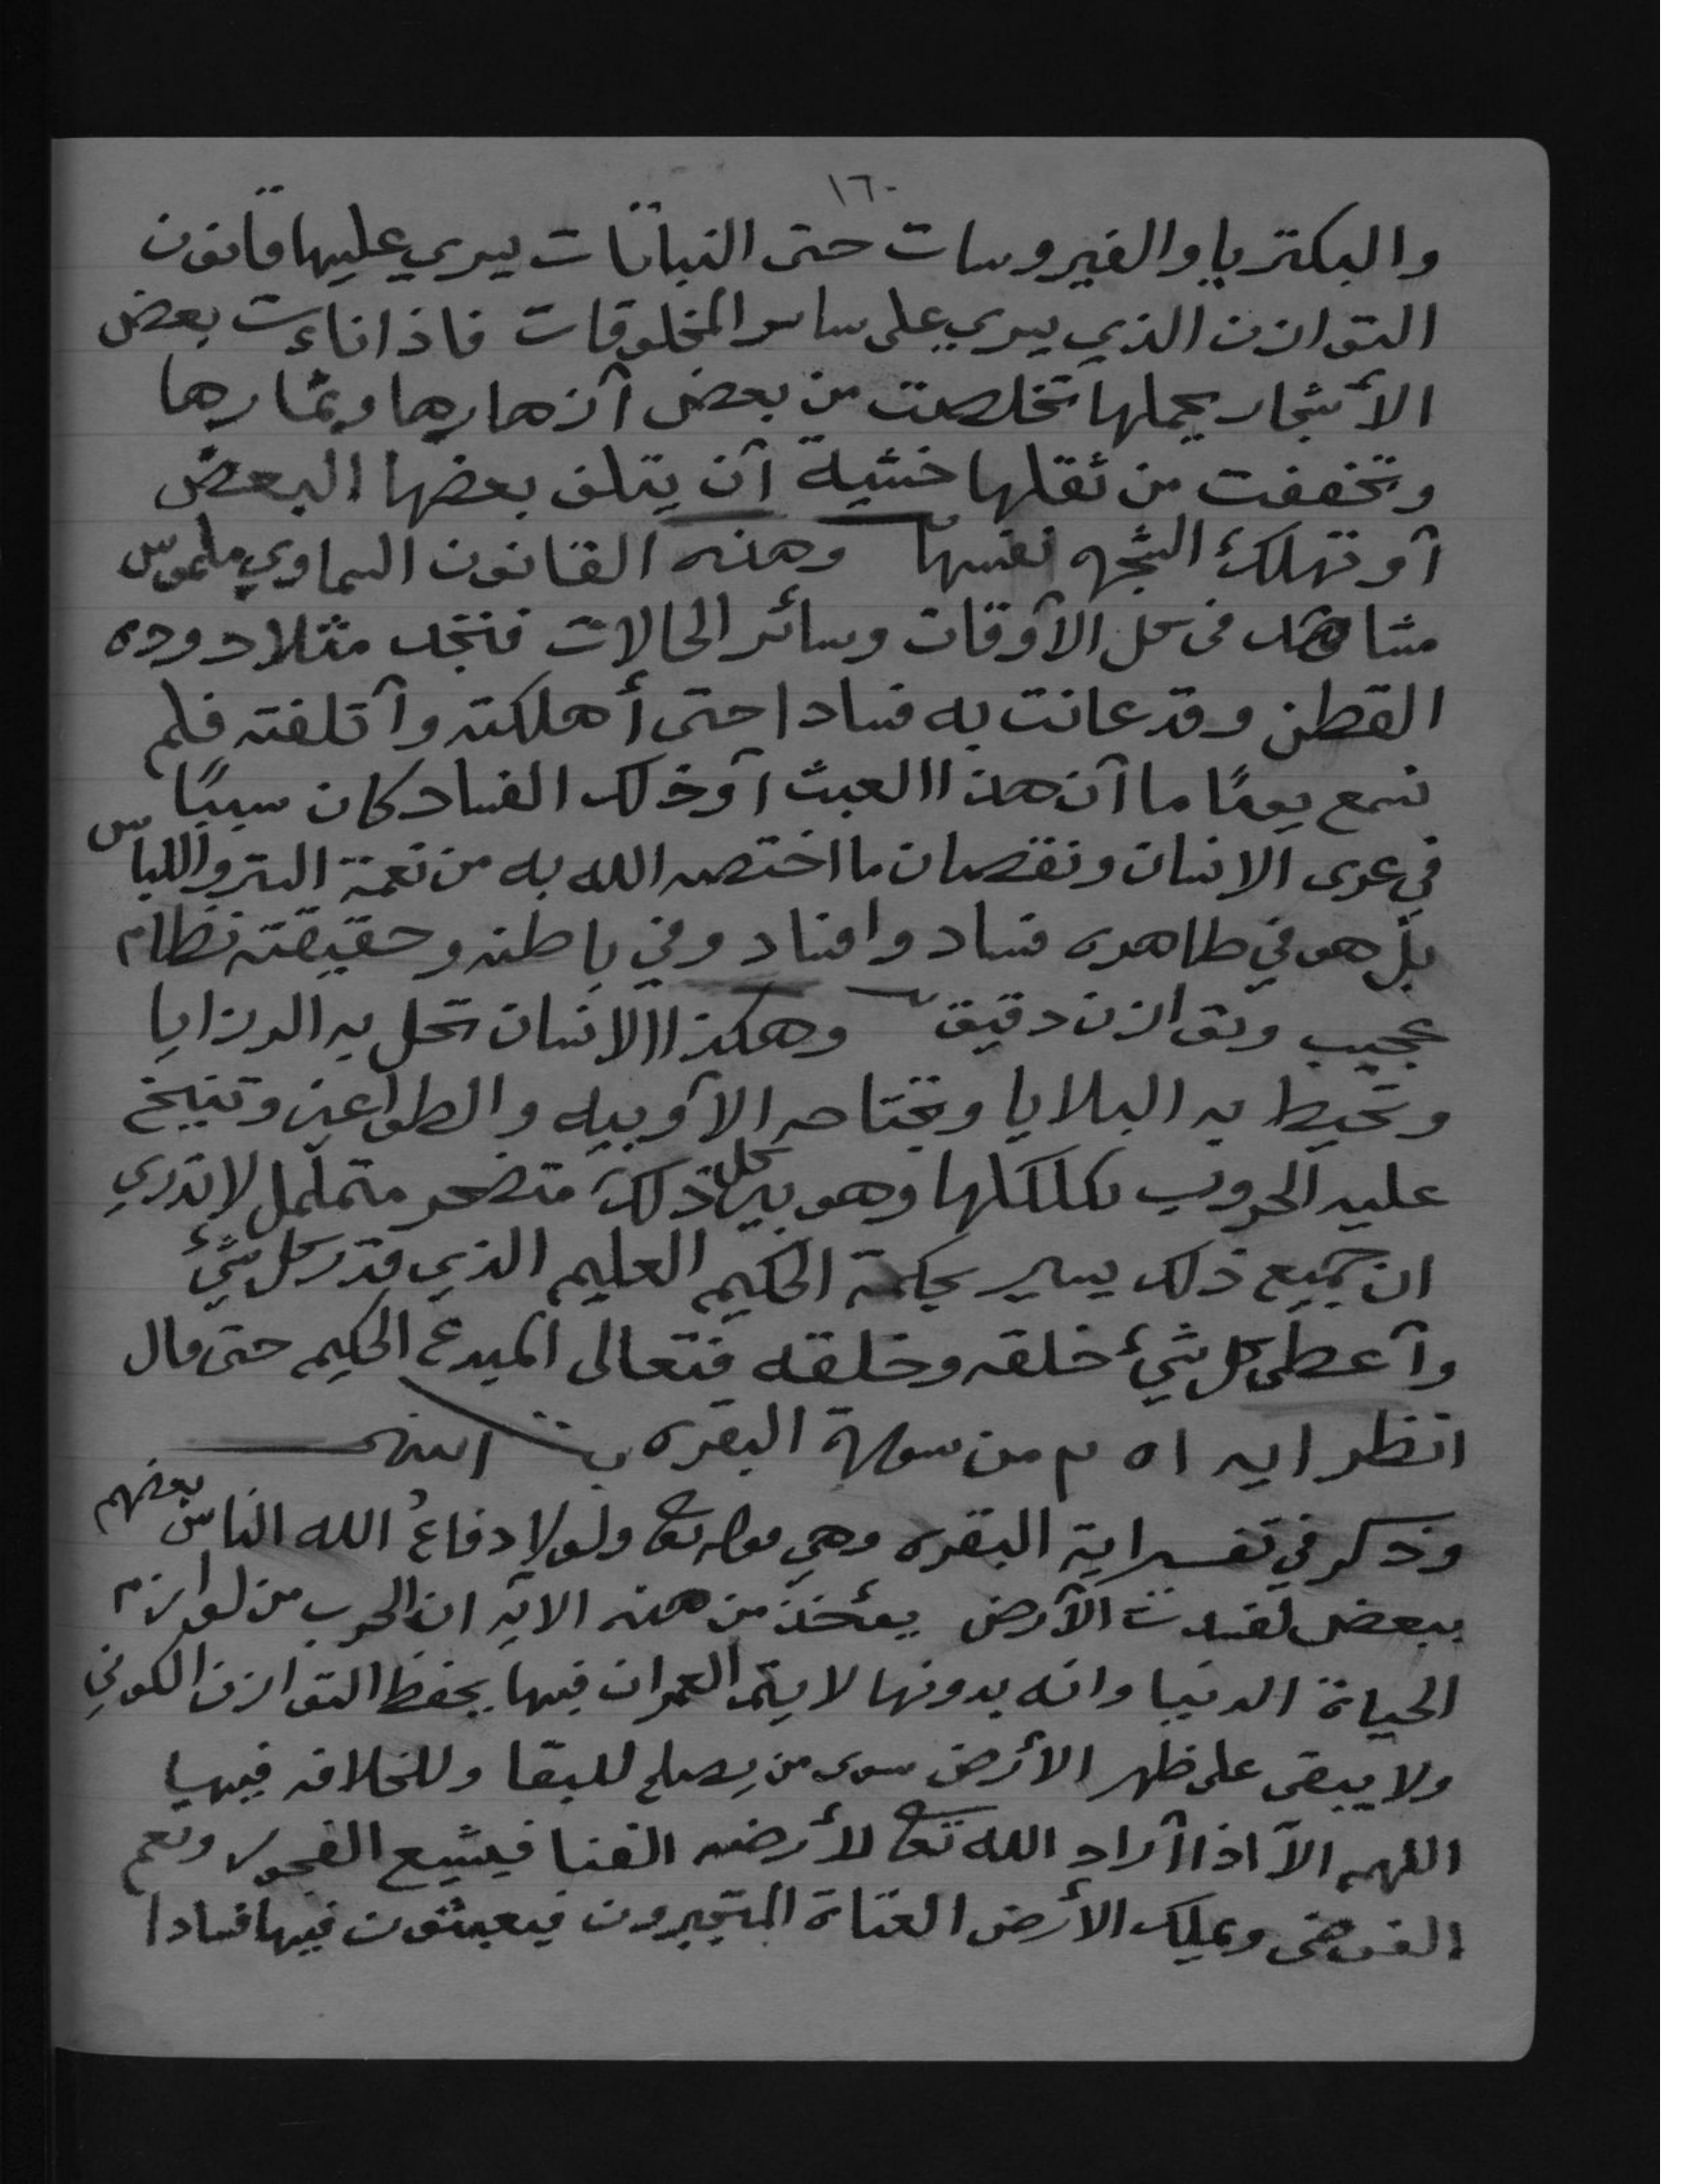 ١٦٠
والبكتريا والفيروسات حتى النباتات يسري عليها قانون
التوازن الذي يسري على سائر المخلوقات فاذا ناءت بعض
الأشجار بحملها تخلصت من بعض أزهارها وثمارها
وتخففت من ثقلها خشية أن يتلف بعضها البعض
أو تهلك الشجره نفسها وهذه القانون السماوي ملموس
مشاهد في كل الأوقات وسائر الحالات فنجد مثلا دوده
القطن وقد عاثت به فسادا حتى أهلكته وأتلفته فلم
نسمع يومًا ما أن هذا العبث أو ذلك الفساد كان سببًا
في عرى الانسان ونقصان ما اختصه الله به من نعمة الستر واللباس
بل هو في ظاهره فساد وافساد وفي باطنه وحقيقته نظام
عجيب وتوازن دقيق وهكذا الانسان تحل به الرزايا
وتحيط به البلايا وتجتاحه الأوبيه والطواعين وتنيخ
عليه الحروب بكلكلها وهو بين كل ذلك متضجر متململ لا يدري
ان جميع ذلك يسير بحكمة الحكيم العليم الذي قدر كل شيء
وأعطى كل شيء خلقه وخلقه فتعالى المبدع الحكيم حتى قال
انظر ايه ٢٥١ من سورة البقره انتهى
وذكر في تفسير اية البقره وهي قوله تعا ولولا دفاعُ الله الناس بعضهم
ببعض لفسدت الأرض يؤخذ من هذه الايه ان الحرب من لوازم
الحياة الدنيا وانه بدونها لا يتم العمران فيها بحفظ التوازن الكوني
ولا يبقى على ظهر الأرض سوى من يصلح للبقا وللخلافه فيها
اللهم الا اذا أراد الله تعا لأرضه الفنا فيشيع الفجور وتعم
الفوضى ويملك الأرض العتاة المتجبرون فيعيثون فيها فسادا